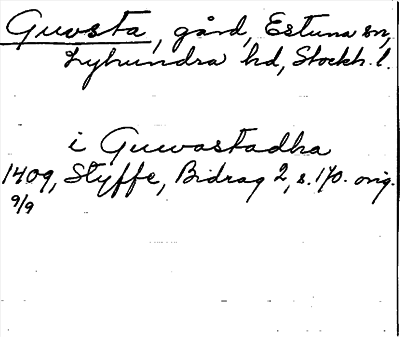 Guvsta, gård, Estuna sn,
Lyhundra hd, Stockh. l.
i Guwastadha
1409, Styffe, Bidrag 2, s. 170. orig.
9/9